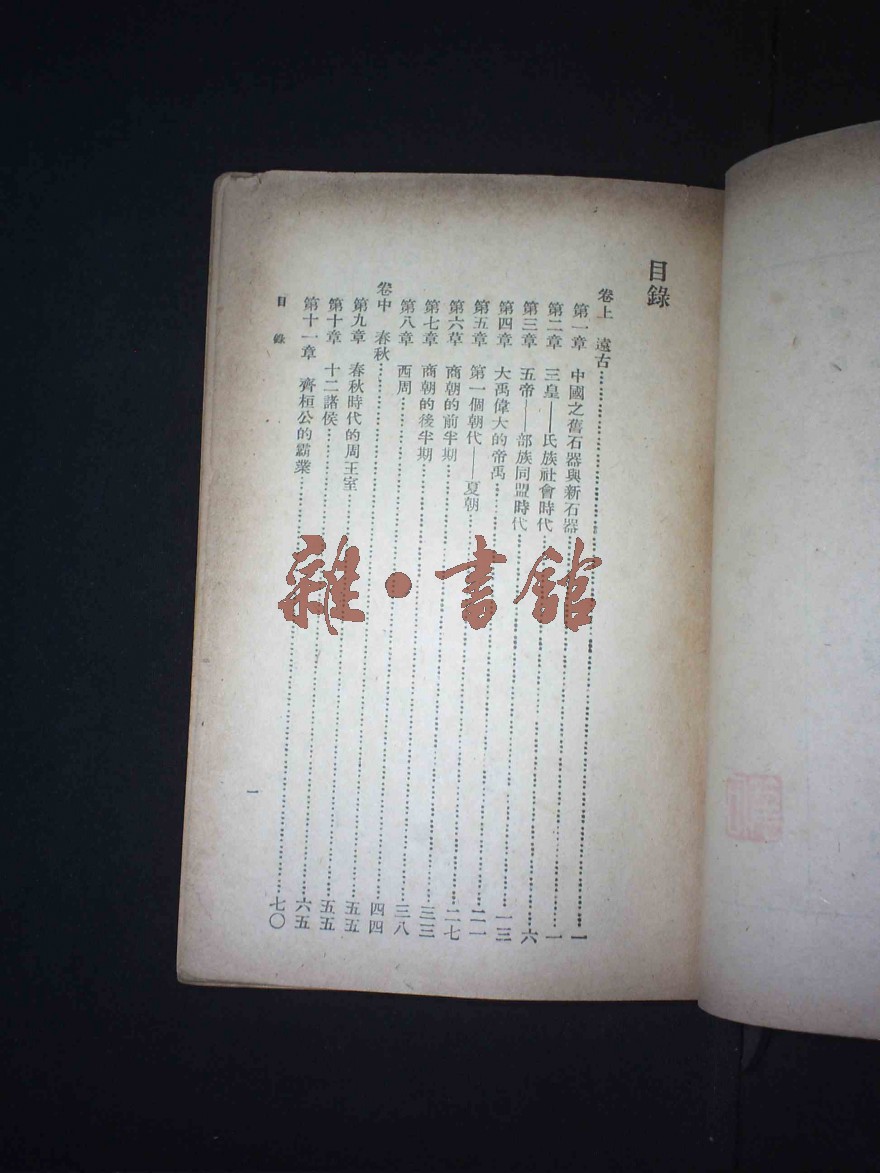 目錄
卷上　遠古……一
第一章　中國之舊石器與新石器……一
第二章　三皇——氏族社會時代……六
第三章　五帝——部族同盟時代……一三
第四章　大禹偉大的帝禹……二一
第五章　第一個朝代——夏朝……二七
第六草　商朝的前半期……三三
第七章　商朝的後半期……三八
第八章　西周……四四
卷中　春秋……五五
第九章　春秋時代的周王室……五五
第十章　十二諸侯……六五
第十一章　齊桓公的霸業……七〇
目錄
一
雜・書館